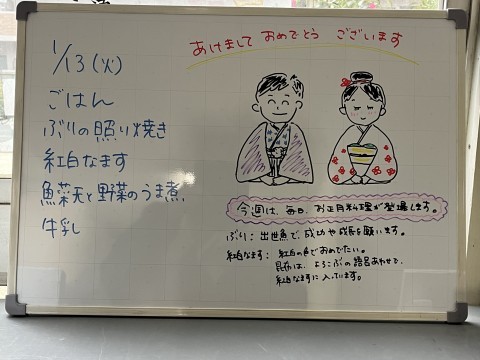 あけまして おめでとう ございます
1/13(火)
ごはん
ぶりの照り焼き
紅白なます
魚菜天と野菜のうま煮
牛乳
今週は、毎日、お正月料理が登場します。
ぶり：出世魚で、成功や成長を願います。
紅白なます：紅白の色でおめでたい。
昆布は、よろこぶの語呂あわせで、
紅白なますに入っています。